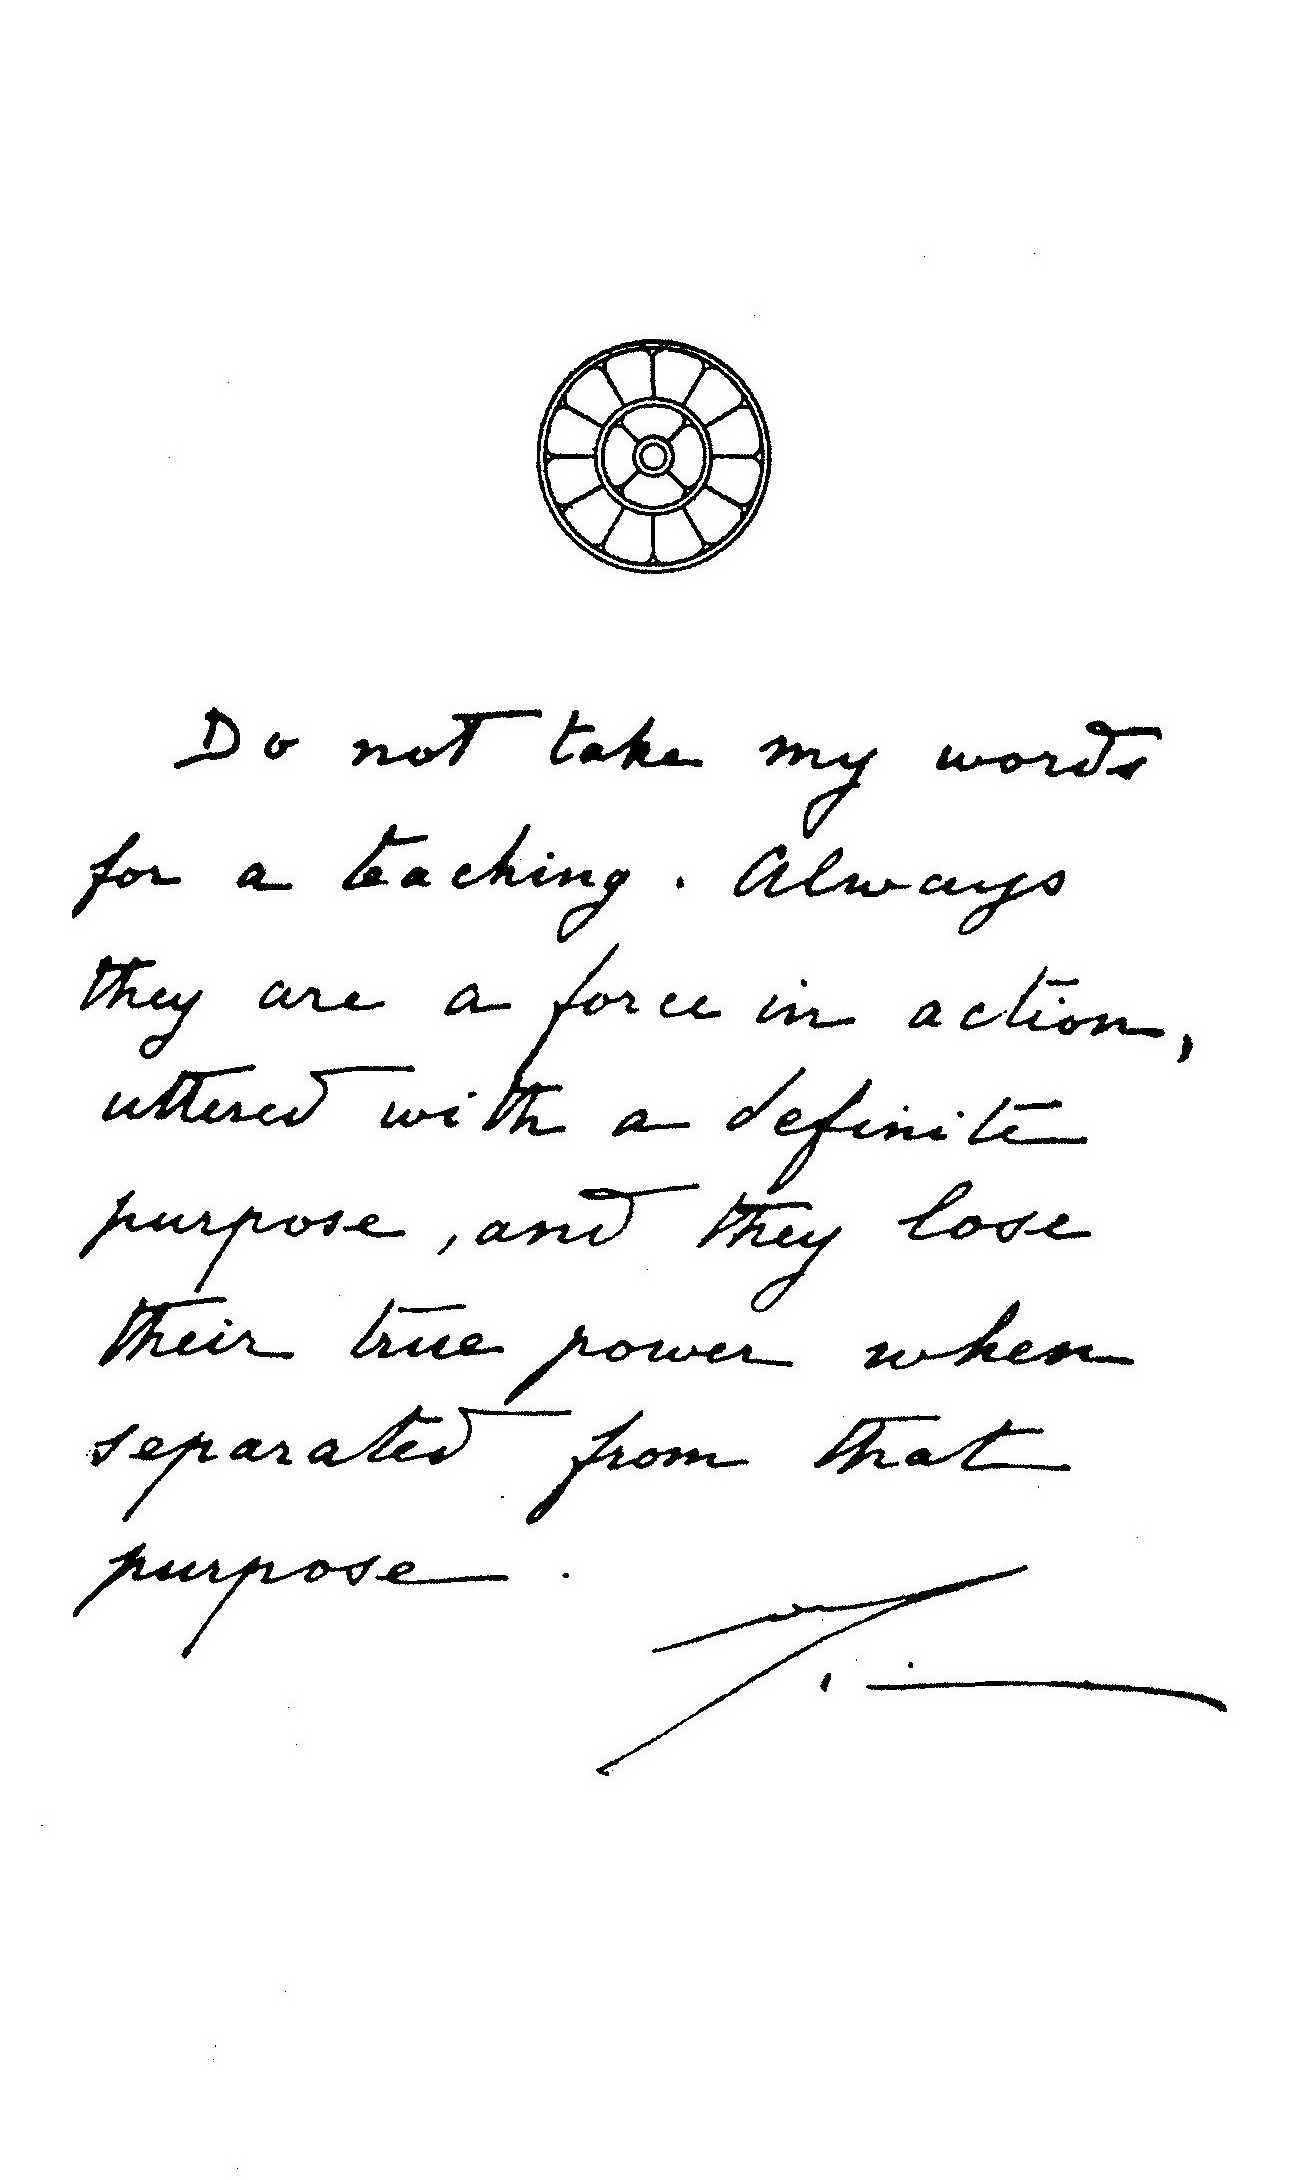 Do not take my words
for a teaching. Always
they are a force in action,
uttered with a definite
purpose, and they lose
their true power when
separated from that
purpose.